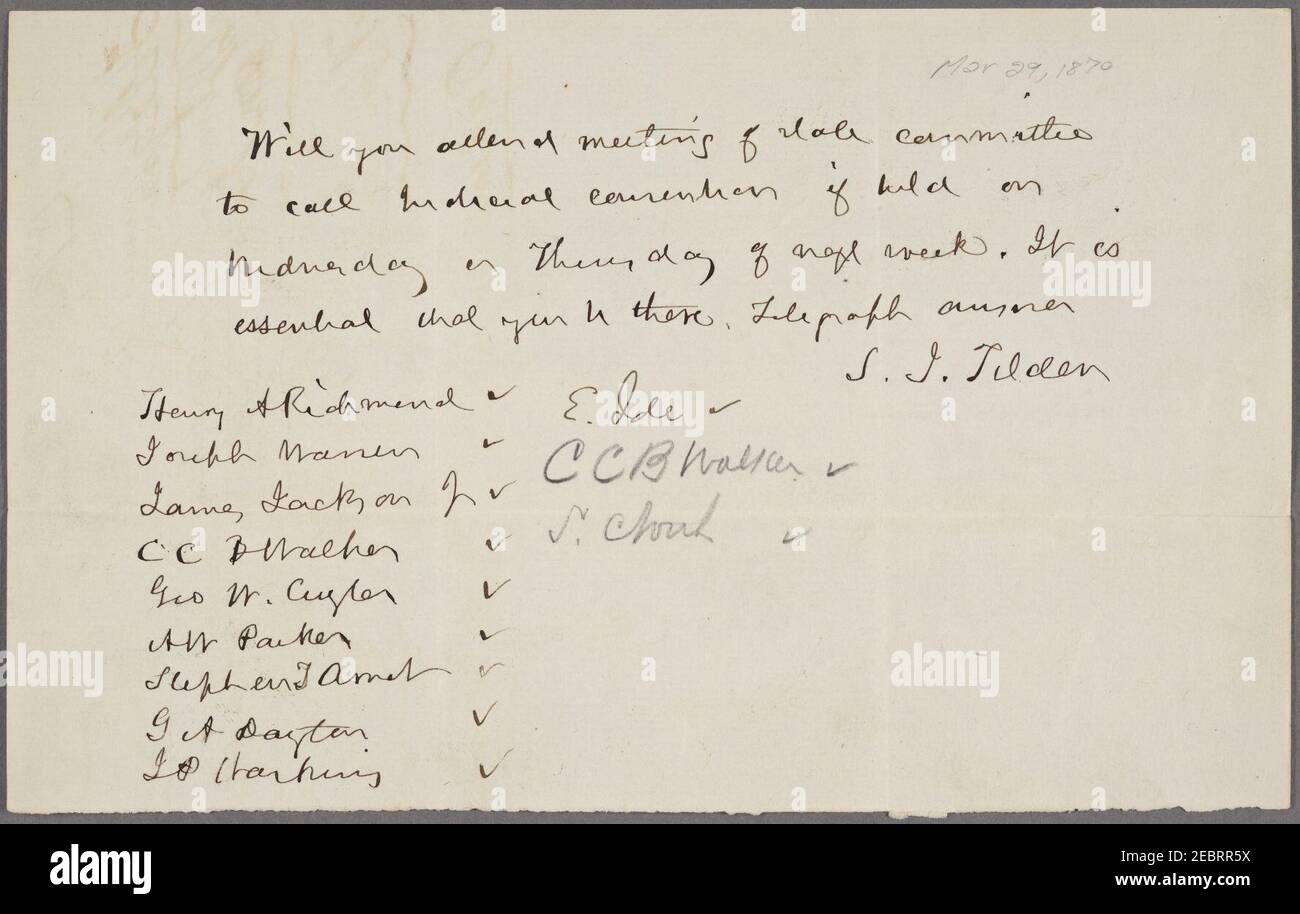 Mar 29, 1870
Will you attend meeting of State committee
to call Judicial convention if held on
Wednesday or Thursday of next week. It is
essential that you be there. Telegraph answer
S. J. Tilden
Henry A Richmond ✓
Joseph Warren ✓
James Jackson Jr ✓
C C B Walker ✓
Geo W. Cuyler ✓
A W Parker ✓
Stephen T Arnot ✓
G A Dayton ✓
Harkins ✓
E. Ide ✓
C C B Walker ✓
S. ✓
alamy
Image ID: 2EBRR5X
www.alamy.com